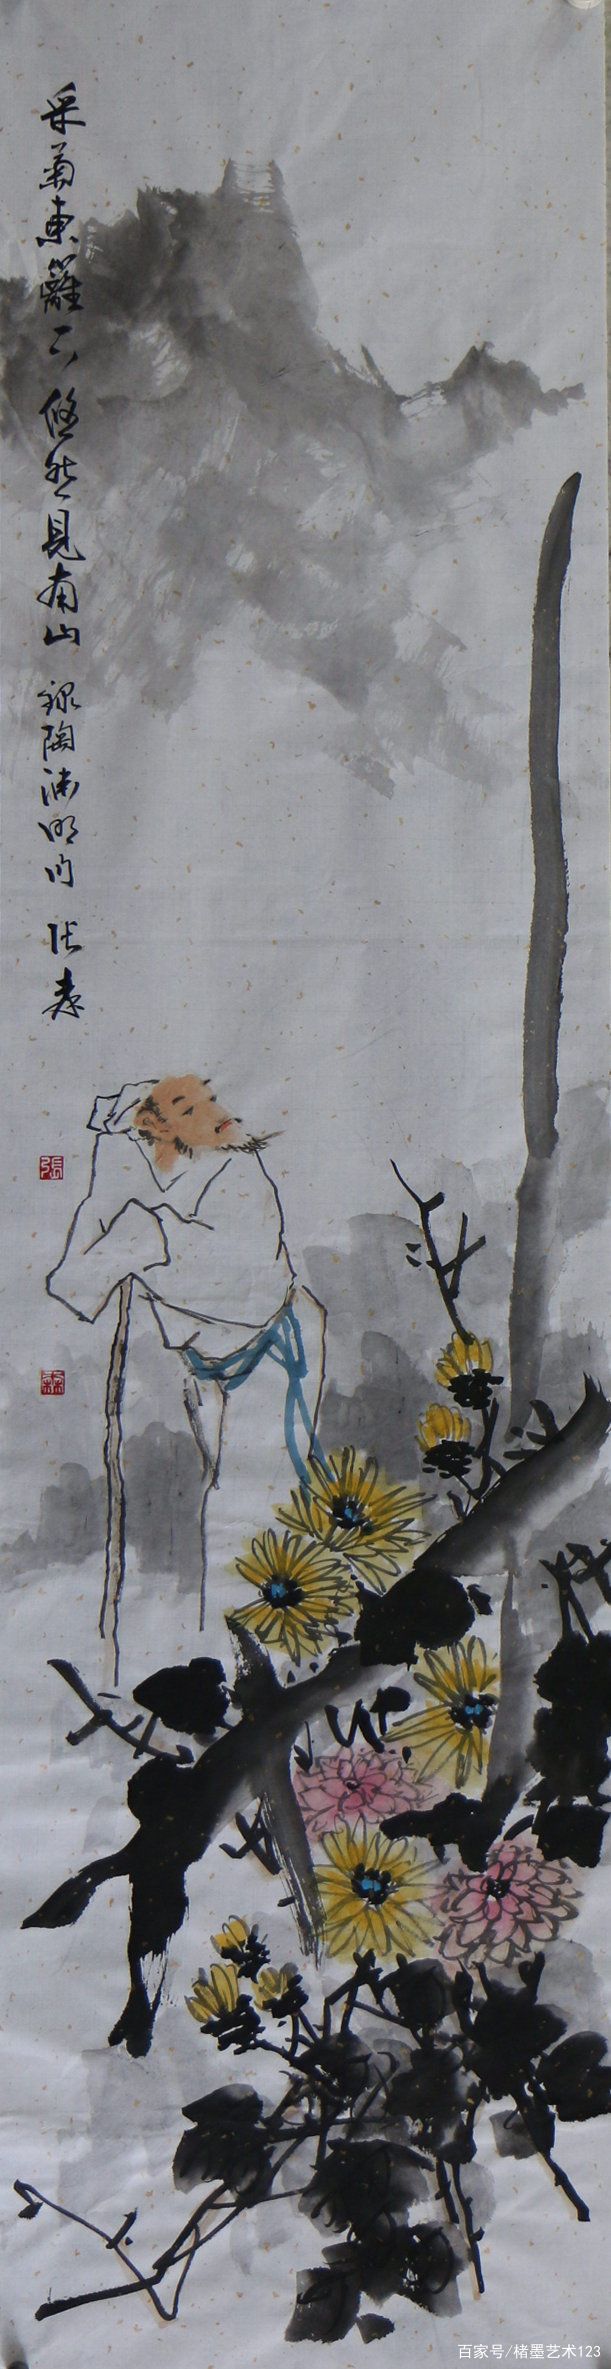 采菊東籬下悠然見南山 録陶渊明句 张森
張
森
百家号/楮墨艺术123